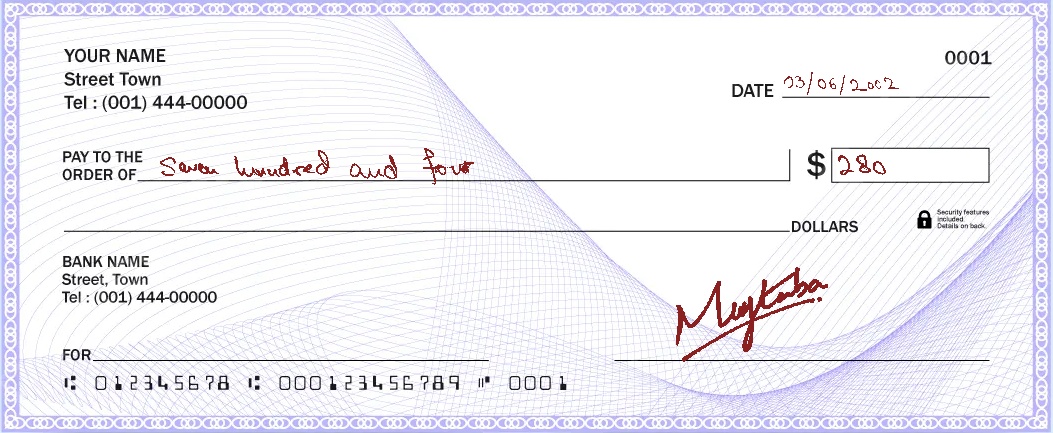 YOUR NAME
0001
Street Town
DATE 03/06/2002
Tel : (001) 444-00000
PAY TO THE
ORDER OF Seven hundred and four $ 280
DOLLARS
Security features
included.
Details on back.
BANK NAME
Street, Town
Tel : (001) 444-00000
Mugtaba
FOR
⑆ 012345678 ⑆ 000123456789 ⑈ 0001